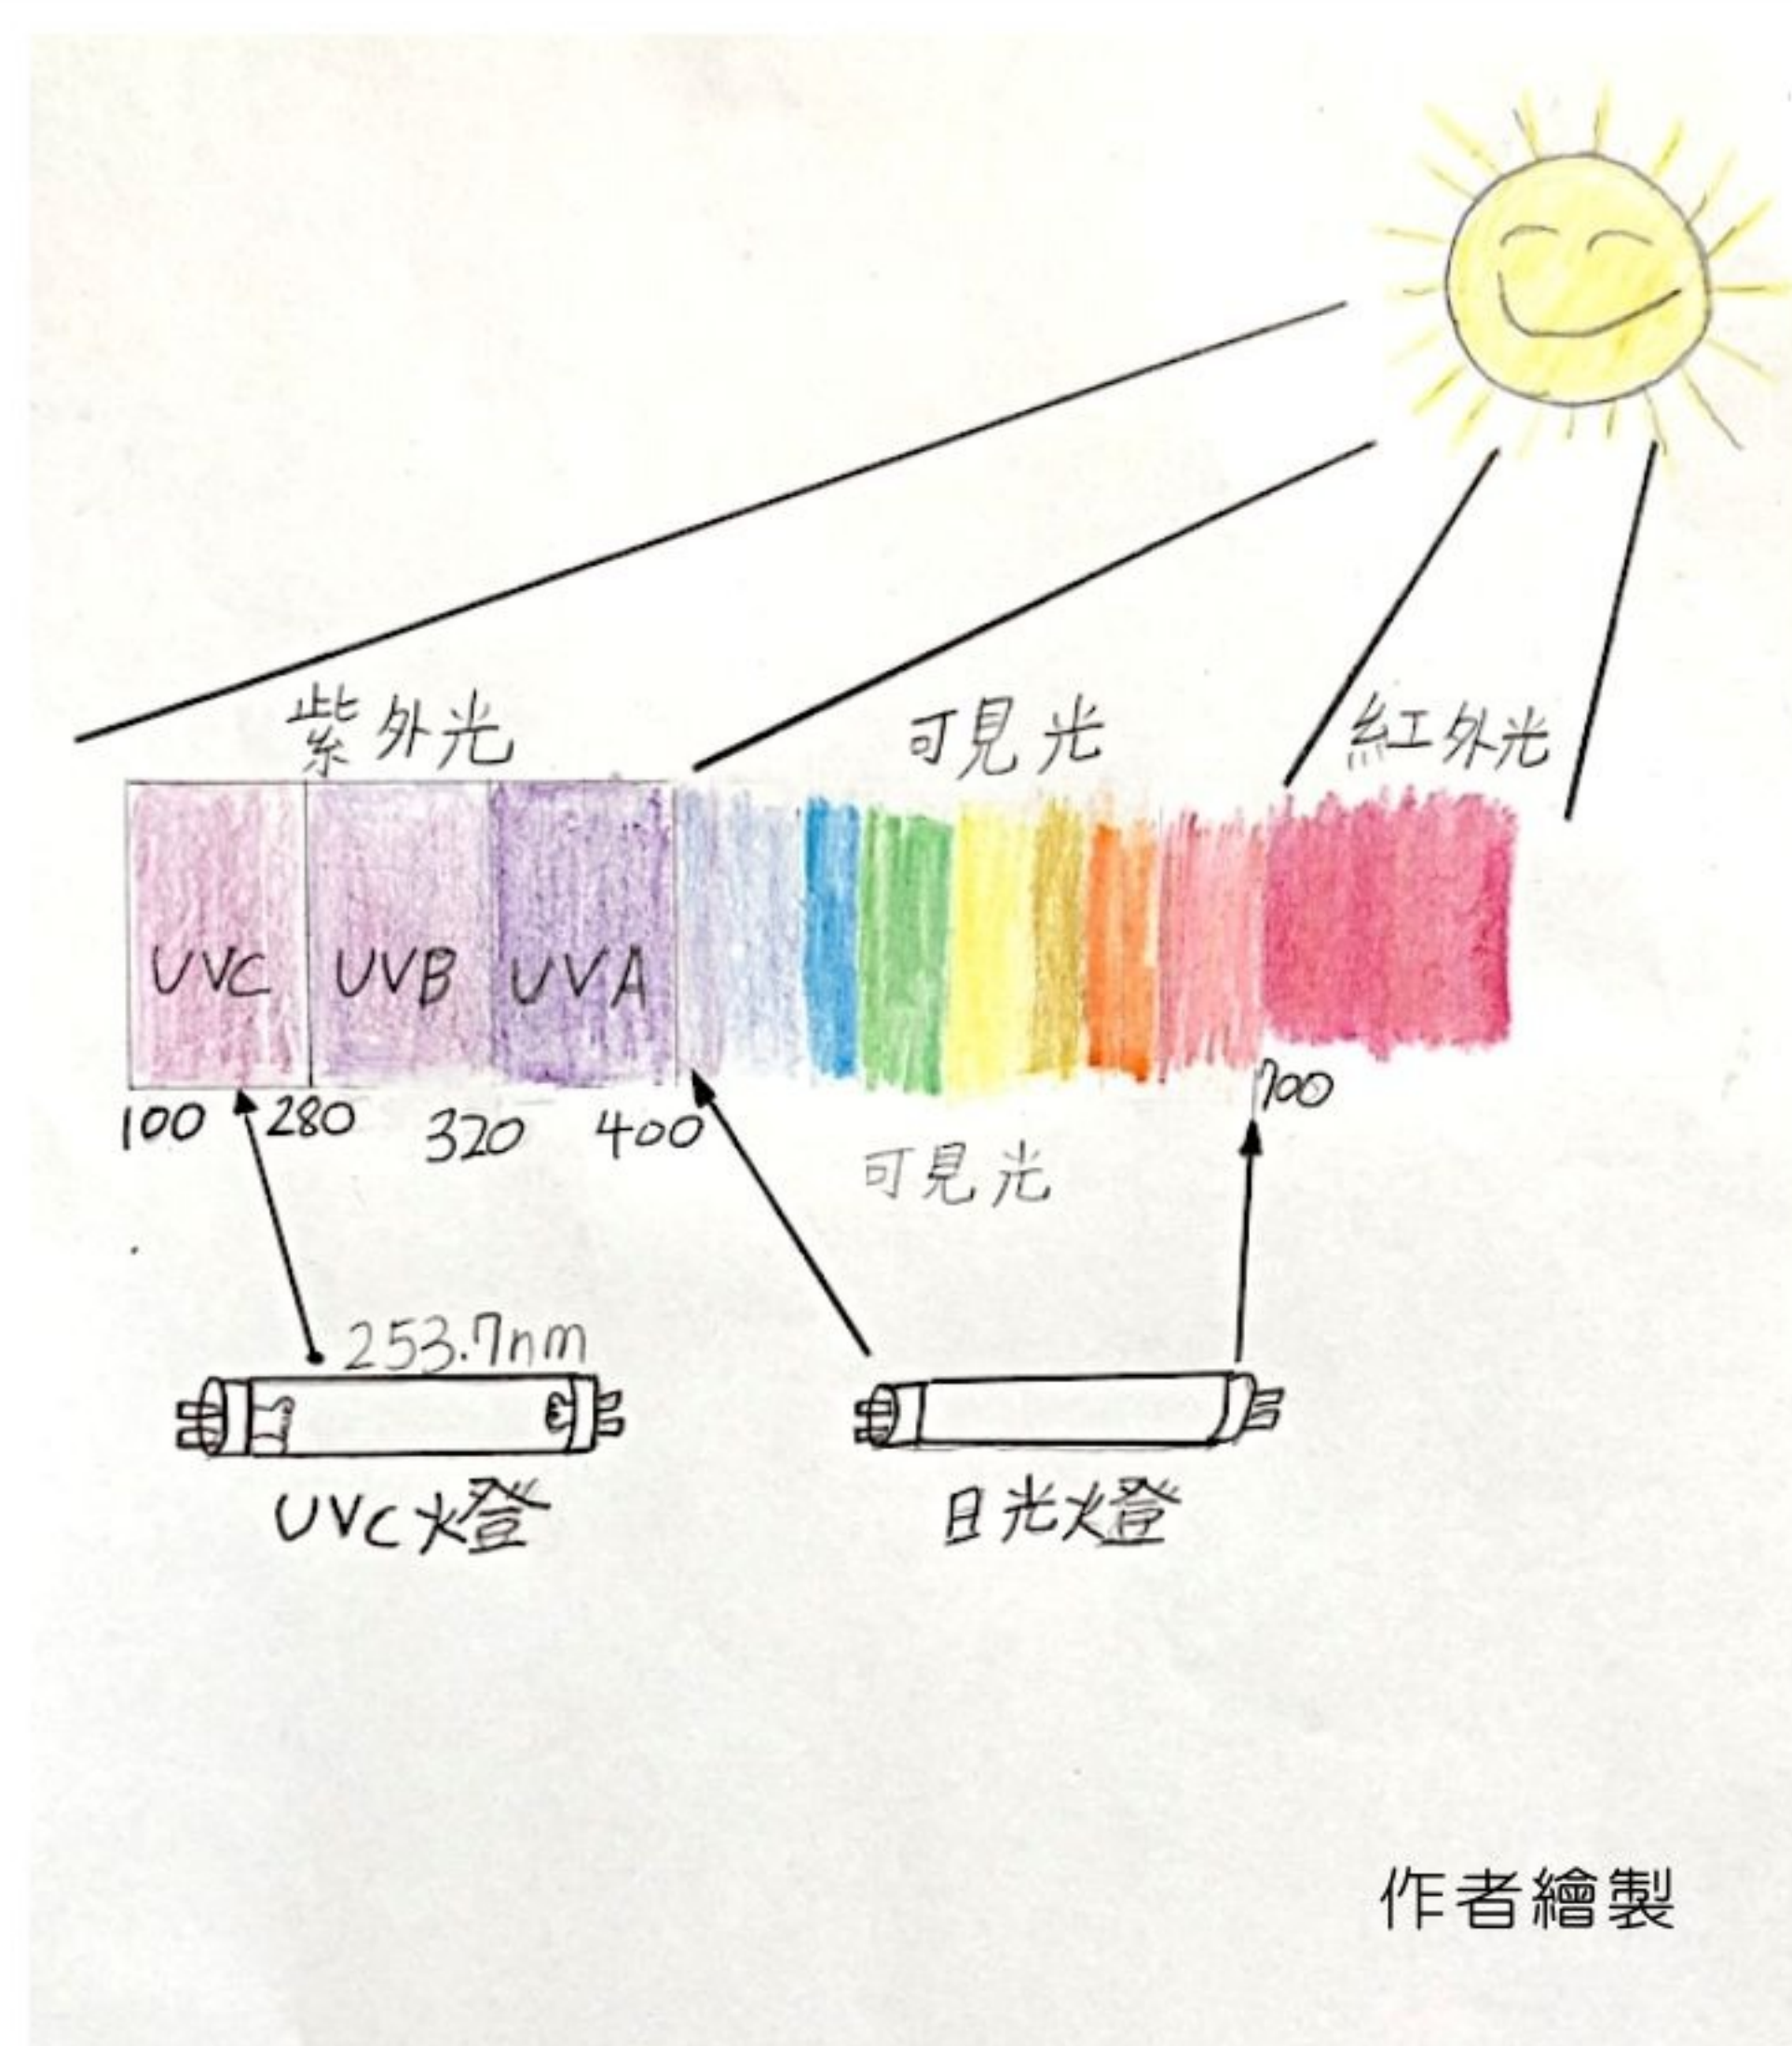 紫外光 可見光 紅外光
UVC UVB UVA
100 280 320 400 700
可見光
253.7nm
UVC燈 日光燈
作者繪製